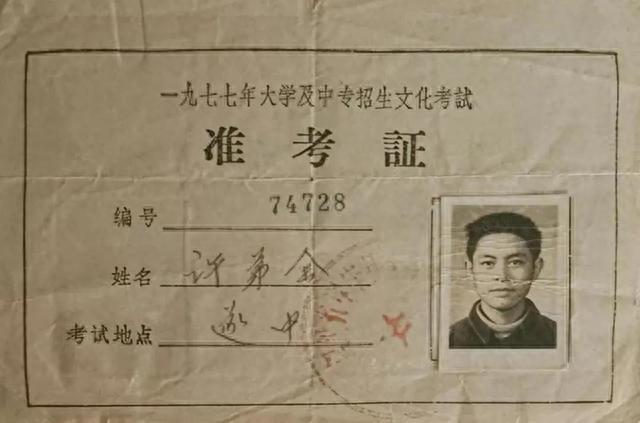 一九七七年大学及中专招生文化考試
准考証
编号 74728
姓名 许弟金
考试地点 遂中